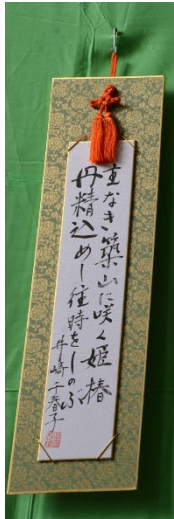 主なき築山に咲く姫椿
丹精込めし往時をしのぶ
井崎千春子